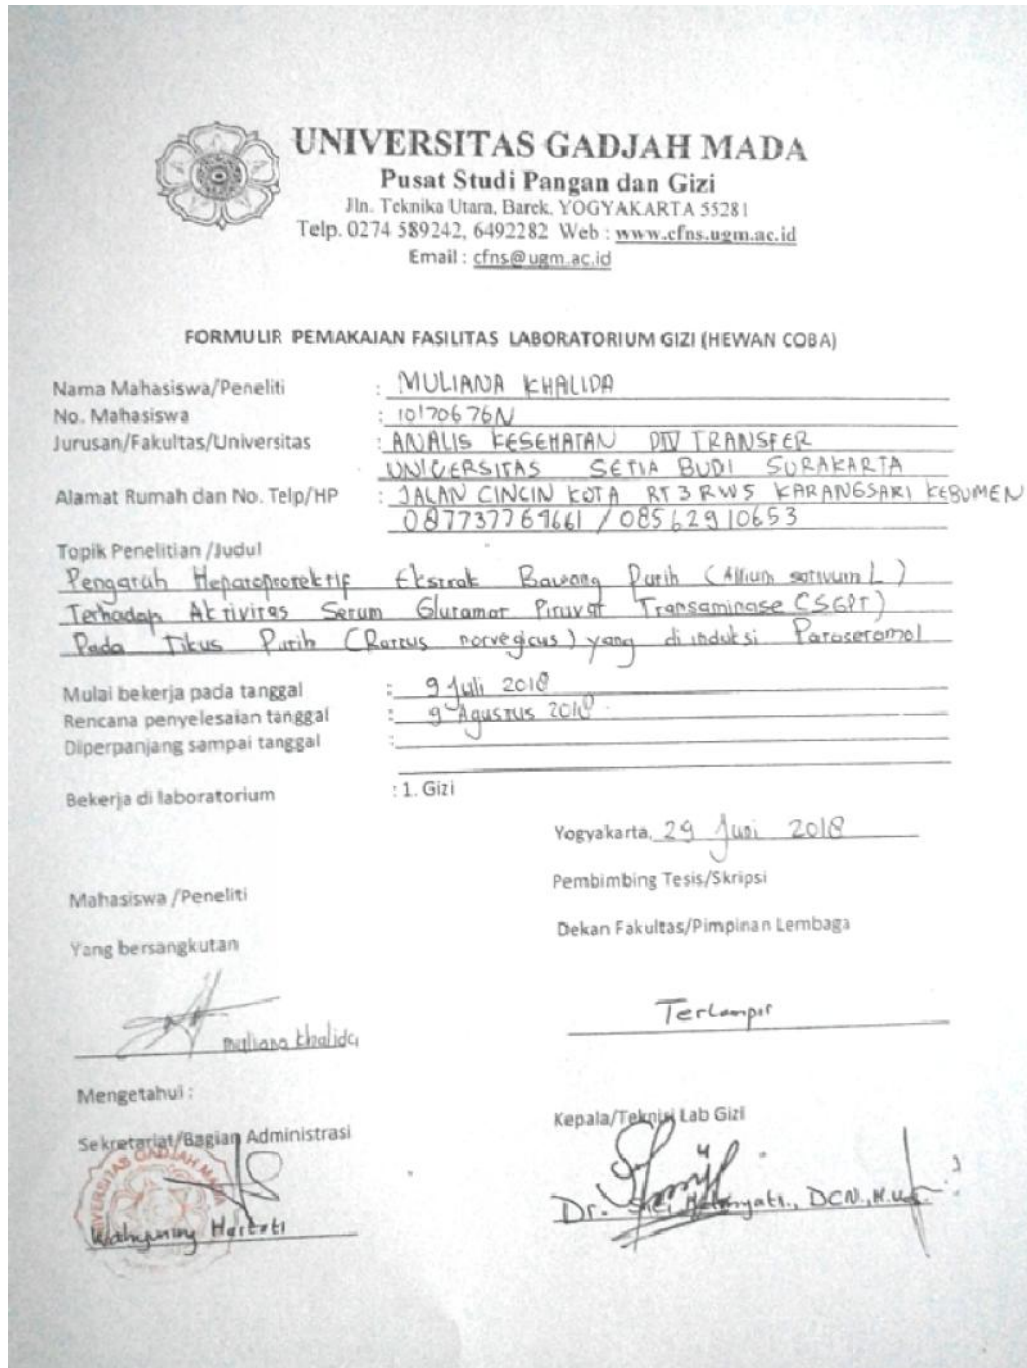 UNIVERSITAS GADJAH MADA
Pusat Studi Pangan dan Gizi
Jln. Teknika Utara, Barek, YOGYAKARTA 55281
Telp. 0274 589242, 6492282 Web : www.cfns.ugm.ac.id
Email : cfns@ugm.ac.id
FORMULIR PEMAKAIAN FASILITAS LABORATORIUM GIZI (HEWAN COBA)
Nama Mahasiswa/Peneliti : MULIANA KHALIDA
No. Mahasiswa : 10170676N
Jurusan/Fakultas/Universitas : ANALIS KESEHATAN DIV TRANSFER
UNIVERSITAS SETIA BUDI SURAKARTA
Alamat Rumah dan No. Telp/HP : JALAN CINCIN KOTA RT 3 RW 5 KARANGSARI KEBUMEN
087737769661 / 08562910653
Topik Penelitian /Judul
Pengaruh Hepatoprotektif Ekstrak Bawang Putih (Allium sativum L)
Terhadap Aktivitas Serum Glutamat Piruvat Transaminase (SGPT)
Pada Tikus Putih (Rattus norvegicus) yang di induksi Parasetamol
Mulai bekerja pada tanggal : 9 Juli 2018
Rencana penyelesaian tanggal : 9 Agustus 2018
Diperpanjang sampai tanggal :
Bekerja di laboratorium : 1. Gizi
Yogyakarta, 29 Juni 2018
Mahasiswa /Peneliti
Pembimbing Tesis/Skripsi
Yang bersangkutan
Dekan Fakultas/Pimpinan Lembaga
muliana khalida
Terlampir
Mengetahui :
Sekretariat/Bagian Administrasi
Kepala/Teknisi Lab Gizi
UNIVERSITAS GADJAH MADA
Hartati
Dr. DCN.,